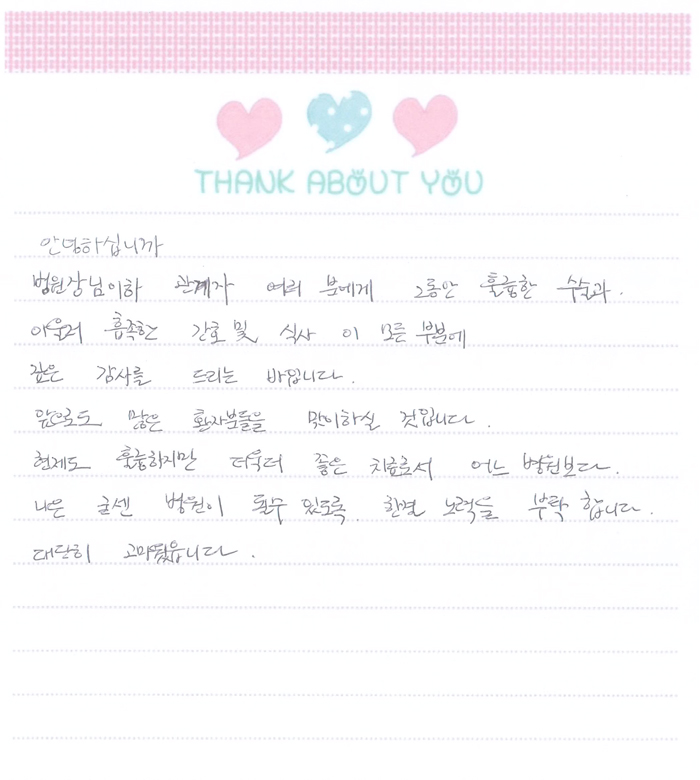 THANK ABOUT YOU
안녕하십니까
병원장님이하 관계자 여러 분에게 그동안 훌륭한 수술과.
아울러 흡족한 간호 및 식사 이 모든 부분에
깊은 감사를 드리는 바입니다.
앞으로도 많은 환자분들을 맞이하실 것입니다.
현제도 훌륭하지만 더욱더 좋은 치료로서 어느 병원보다.
나은 굳센 병원이 될수 있도록. 한결 노력을 부탁 합니다.
대단히 고마웠읍니다.